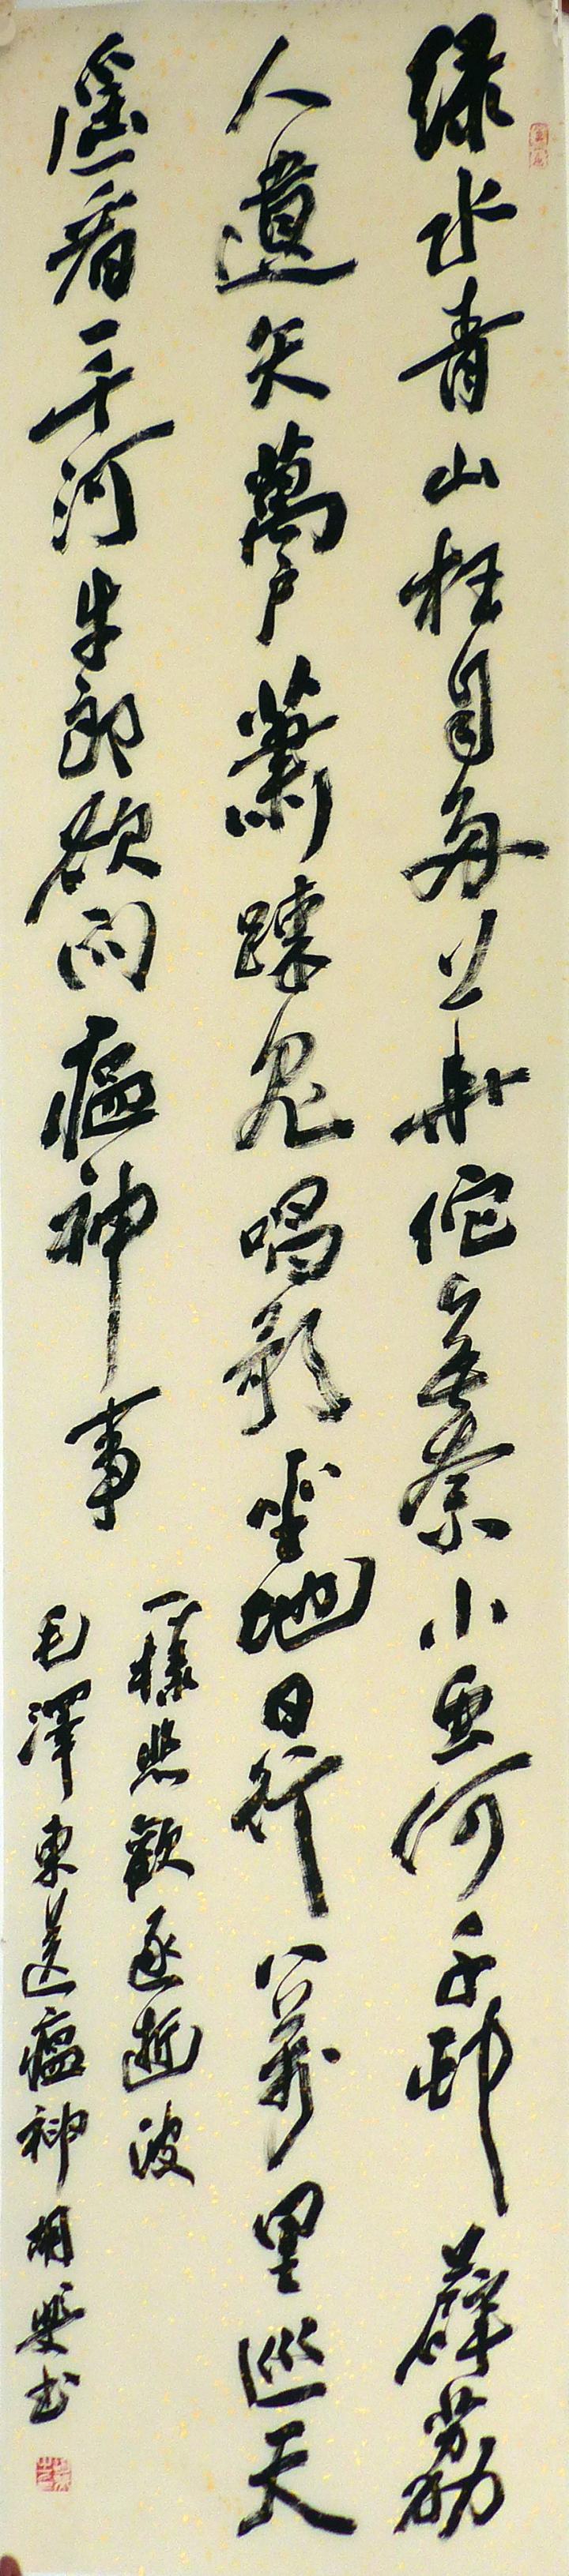 绿水青山枉自多華佗無奈小虫何千邨薜荔
人遺矢萬户蕭踈鬼唱歌坐地日行八萬里巡天
遥看一千河牛郎欲问瘟神事
一樣悲歡逐逝波
毛澤東送瘟神 胡书